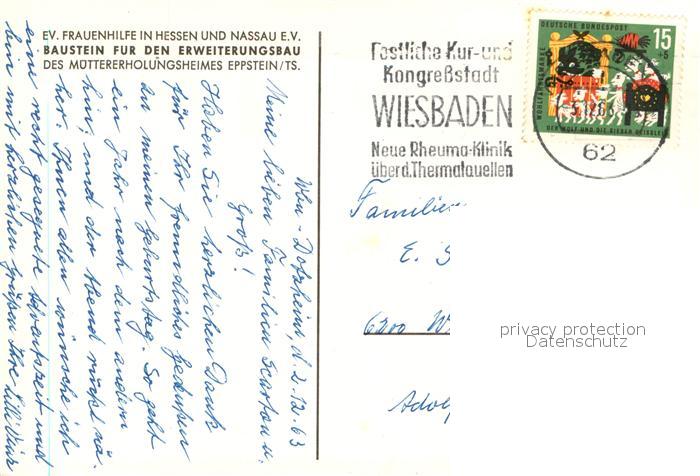 EV. FRAUENHILFE IN HESSEN UND NASSAU E.V.
BAUSTEIN FÜR DEN ERWEITERUNGSBAU
DES MÜTTERERHOLUNGSHEIMES EPPSTEIN/TS.
Wbn-Dotzheim, d. 2.12.63
Meine lieben Familien u.
Groß!
Haben Sie herzlichen Dank
für Ihr freundliches Gedenken
zu meinem Geburtstag. So geht
ein Jahr nach dem andern
hin, und der Abend rückt nä-
her. Ihnen allen wünsche ich
eine recht gesegnete Adventszeit und
bin mit herzlichen Grüßen Ihre
Festliche Kur-und
Kongreßstadt
WIESBADEN
Neue Rheuma-Klinik
über d. Thermalquellen
62
DEUTSCHE BUNDESPOST
15
+5
WOHLFAHRTSMARKE
DER WOLF UND DIE SIEBEN GEISSLEIN
Familien
E. S
6200 W
Adolf
privacy protection
Datenschutz